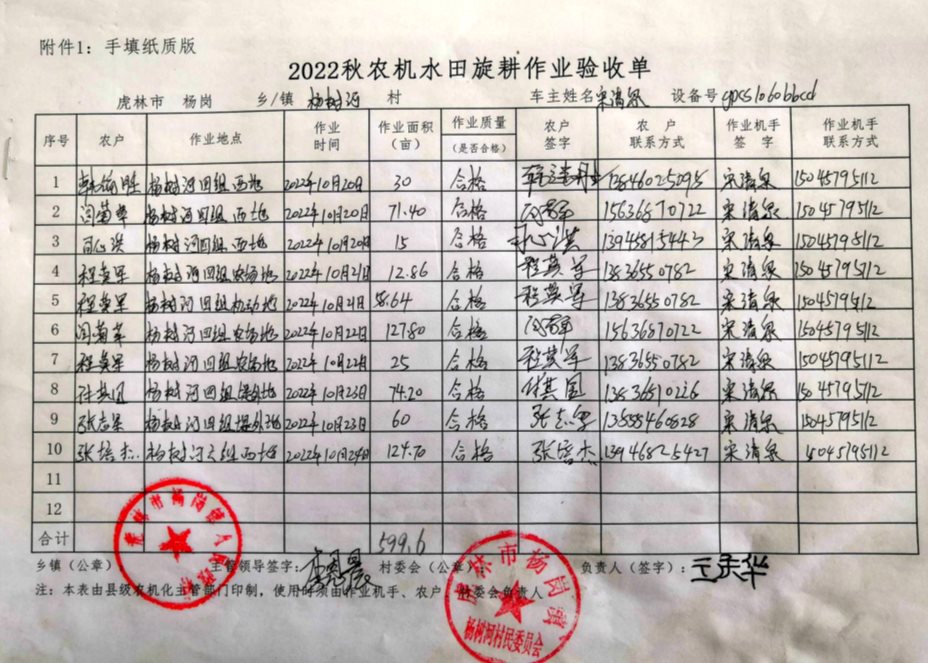 附件1：手填纸质版
2022秋农机水田旋耕作业验收单
虎林市 杨岗 乡/镇 杨树河 村 车主姓名 宋清泉 设备号
序号 农户 作业地点 作业时间 作业面积（亩） 作业质量（是否合格） 农户签字 农户联系方式 作业机手签字 作业机手联系方式
1 杨树河四组西地 2022年10月20日 30 合格 宋清泉 15045795112
2 杨树河四组西地 2022年10月20日 71.40 合格 15636870722 宋清泉 15045795112
3 杨树河四组西地 2022年10月20日 15 合格 13945815443 宋清泉 15045795112
4 程英军 杨树河四组农场地 2022年10月21日 12.86 合格 程英军 13836550782 宋清泉 15045795112
5 程英军 杨树河四组机动地 2022年10月21日 58.64 合格 程英军 13836550782 宋清泉 15045795112
6 杨树河四组农场地 2022年10月22日 127.80 合格 15636870722 宋清泉 15045795112
7 程英军 杨树河四组农场地 2022年10月22日 25 合格 程英军 13836550782 宋清泉 15045795112
8 杨树河四组 2022年10月23日 74.20 合格 宋清泉 15045795112
9 杨树河四组 2022年10月23日 60 合格 宋清泉 15045795112
10 张培杰 杨树河 组西地 2022年10月24日 124.70 合格 张培杰 13946825427 宋清泉 15045795112
11
12
合计 599.6
乡镇（公章） 主管领导签字： 村委会（公章）： 负责人（签字）：
注：本表由县级农机化主管部门印制，使用时须由作业机手、农户、村委会负责人
虎林市杨岗镇人民政府
虎林市杨岗镇
杨树河村民委员会